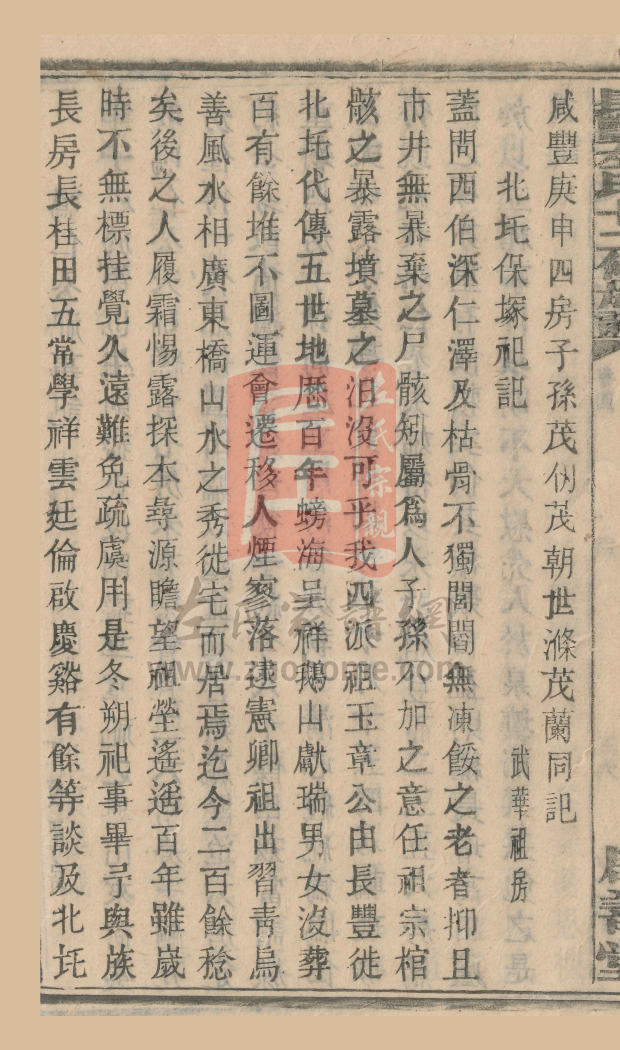 咸豐庚申四房子孫茂仂茂朝世滌茂蘭同記
北圫保塚祀記 武華祖房
蓋聞西伯深仁澤及枯骨不獨閭閻無凍餒之老者抑且
市井無暴棄之尸骸矧屬爲人子孫不加之意任祖宗棺
骸之暴露墳墓之汨沒可乎我四派祖玉章公由長豐徙
北圫代傳五世地歴百年螃海呈祥鵝山獻瑞男女沒葬
百有餘堆不圖運會遷移人煙寥落逮憲卿祖出習靑烏
善風水相廣東橋山水之秀徙宅而居焉迄今二百餘稔
矣後之人履霜惕露探本彝源瞻望祖塋遙遙百年雖歲
時不無標挂覺久遠難免疏虞用是冬朔祀事畢予與族
長房長桂田五常學祥雲廷倫啟慶谿有餘等談及北圫
左氏宗親
左氏宗譜網
www.zuojiome.com